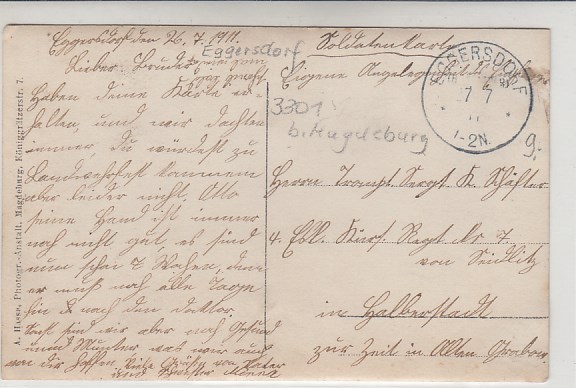 Eggersdorf den 26. 7. 1911.
Eggersdorf
Lieber Bruder
Haben deine Karte er-
halten, und wir dachten
immer, Du würdest zu
Landwehrfest kommen
aber leider nicht, Otto
seine Hand ist immer
noch nicht gut, es sind
nun schon 7 Wochen, denn
er muß noch alle Tage
hin nach den Doktor.
Sonst sind wir aber noch Gesund
und Munter was wir auch
von dir hoffen Viele Grüße von Vater
und
A. Haspe, Photogr.-Anstalt, Magdeburg, Königgrätzerstr. 7.
Soldatenkarte
Eigene Angelegenheit
3301
b. Magdeburg
EGGERSDORF
1-2N.
9.-
Herrn Trompt Sergt K. Schäfter
4. Esk. Kürs. Regt Nr 7.
von Seidlitz
in Halberstadt
zur Zeit in Alten Grabow